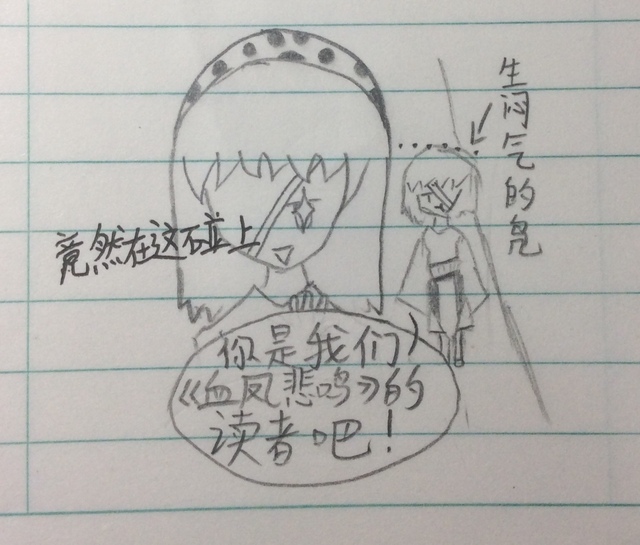 生闷气的凫
竟然在这碰上
你是我们
《血凤悲鸣》的
读者吧！